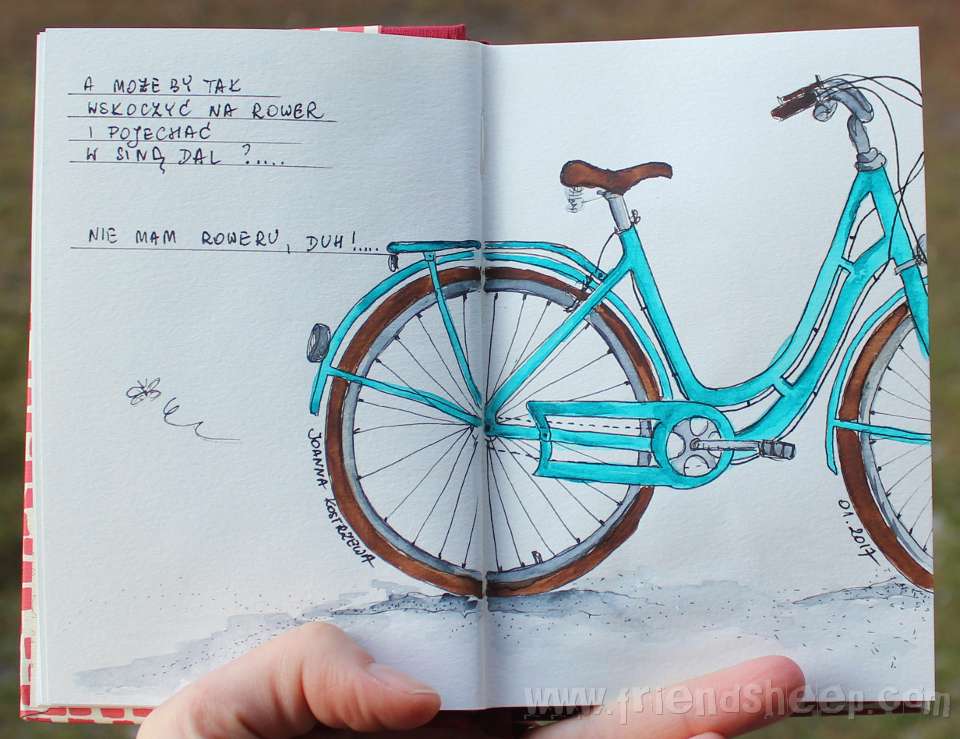 A MOŻE BY TAK
WSKOCZYĆ NA ROWER
I POJECHAĆ
W SINĄ DAL ?.....
NIE MAM ROWERU, DUH!....
JOANNA KOSTRZEWA
01.2017
www.friendsheep.com